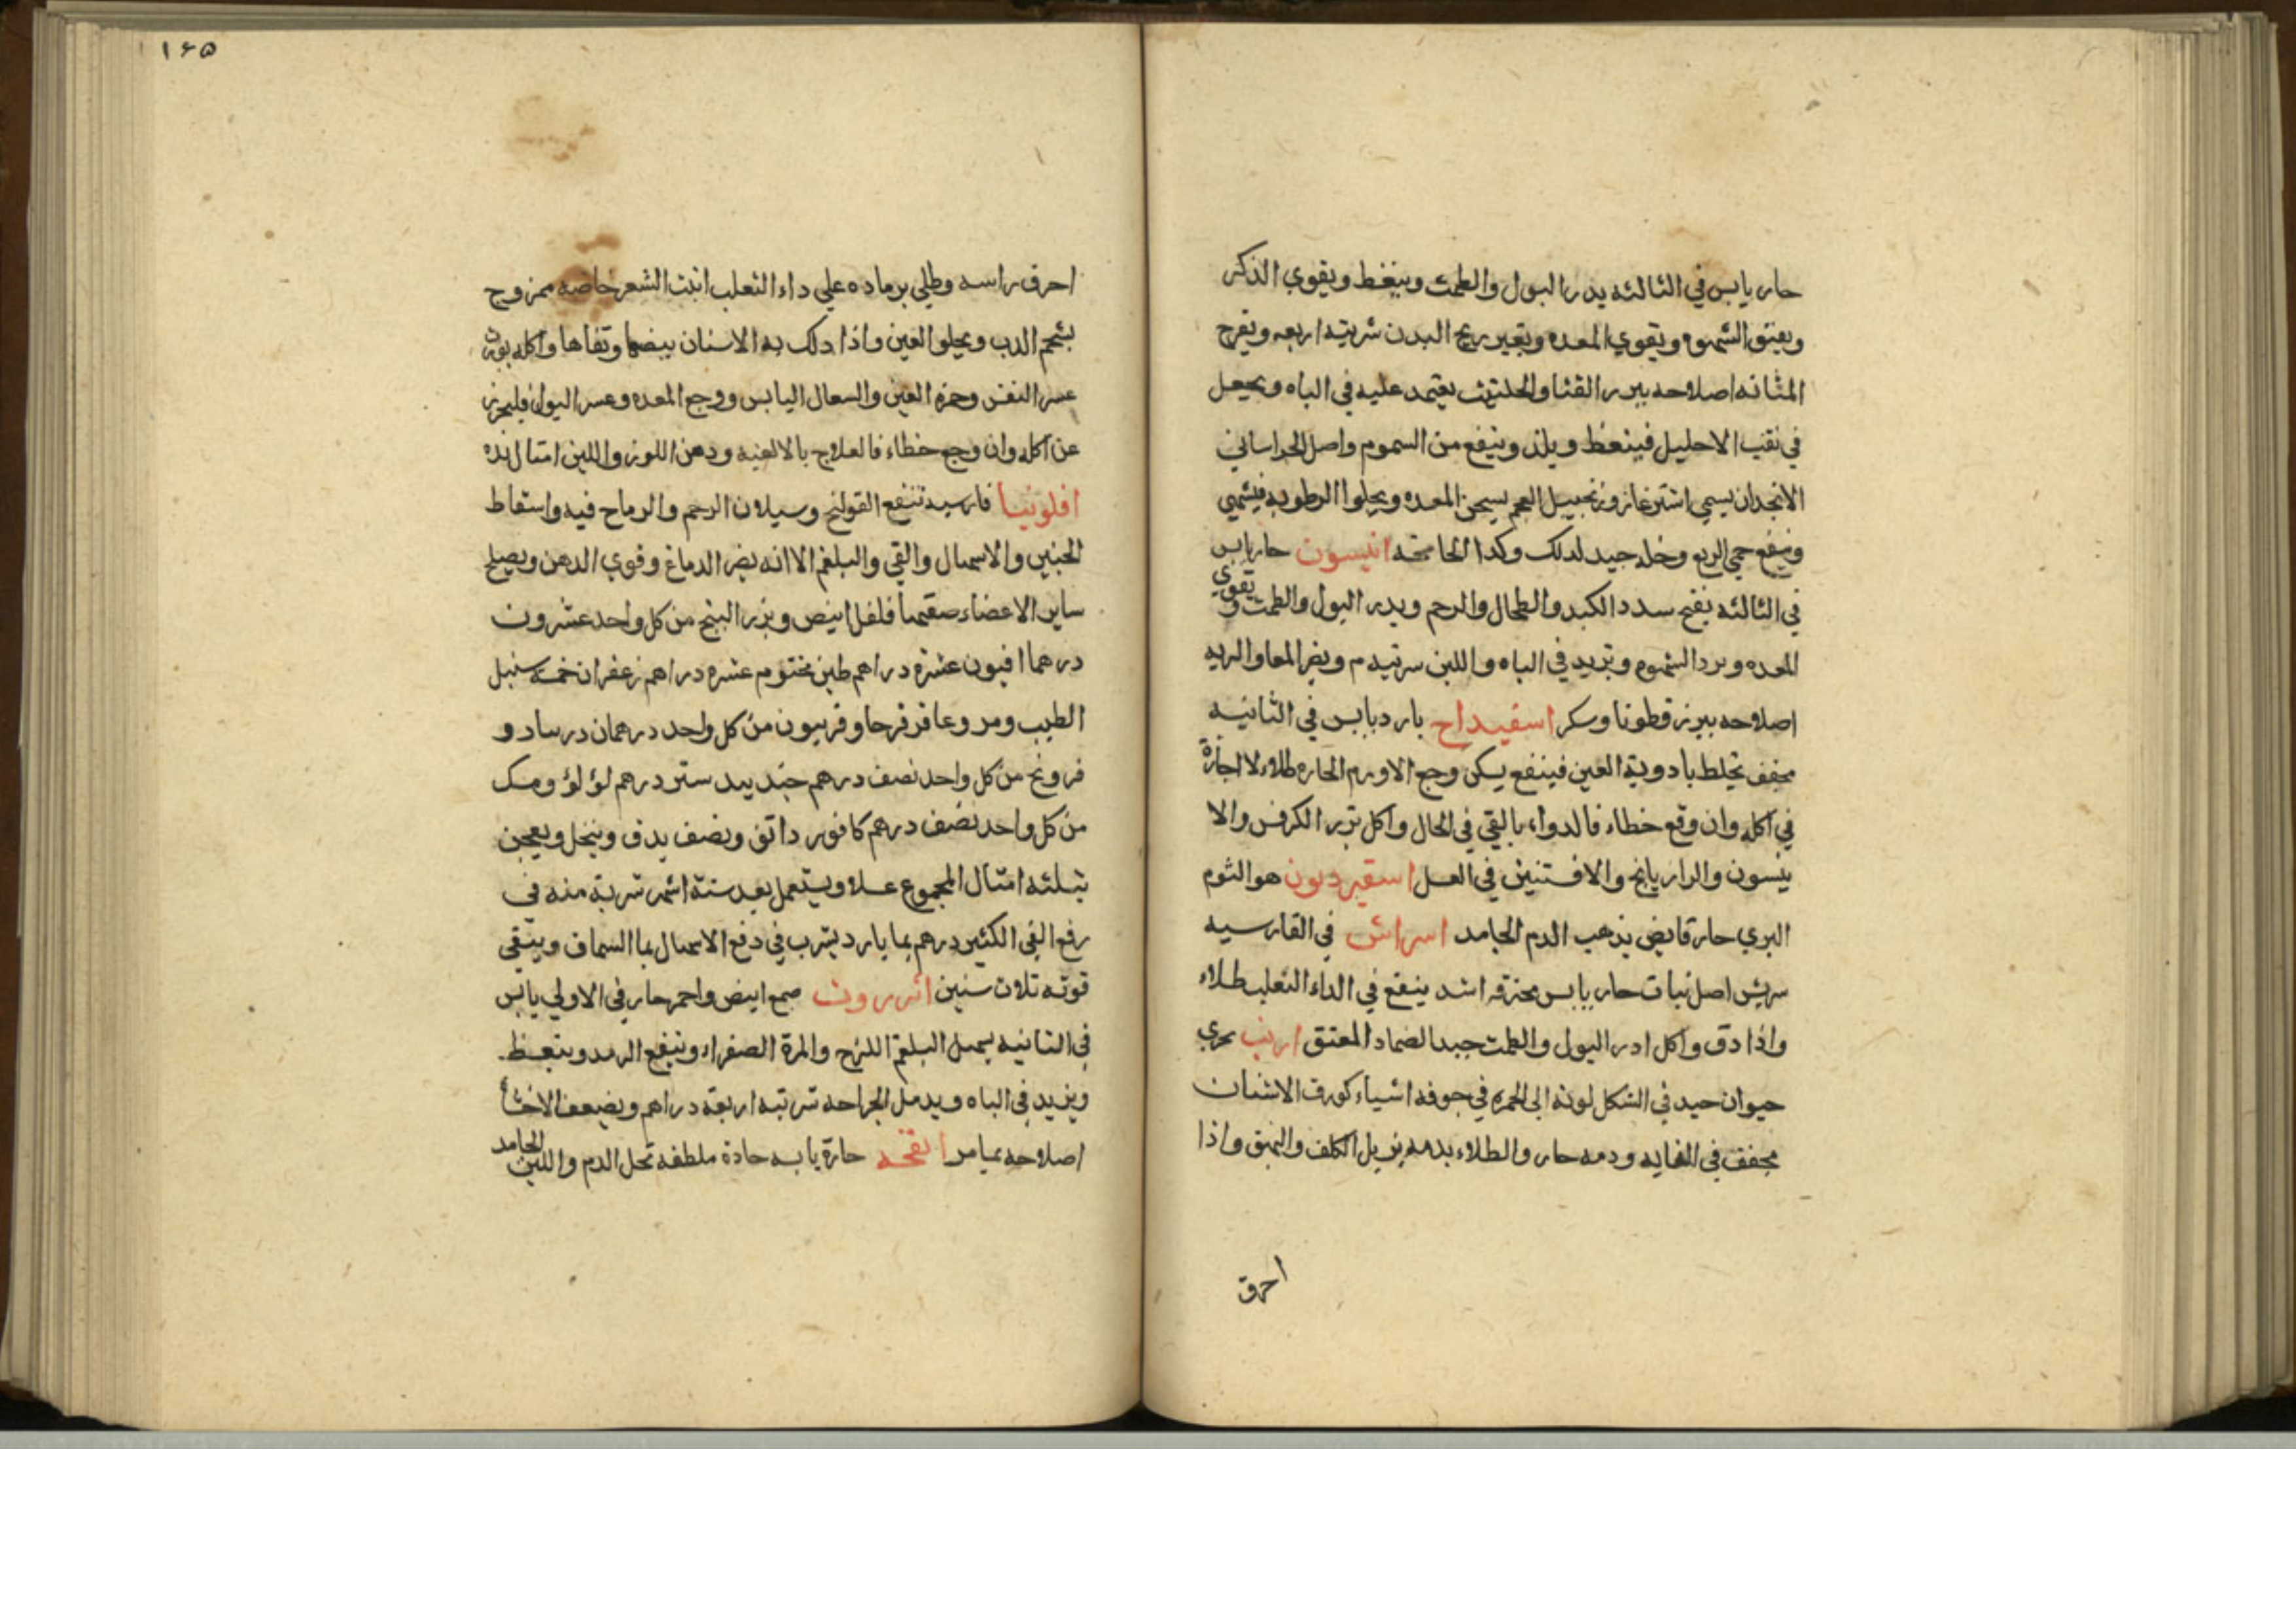 حار يابس في الثالثه يدر البول والطمث وينغط ويقوي الذكر
ويفتق الشهوه ويقوي المعده ويغير ريح البدن شربته اربعه ويقرح
المثانه اصلاحه ببزر القثا والحلتيت يعتمد عليه في الباه ويجعل
في نقب الاحليل فينعظ ويلذ وينفع من السموم واصل الخراساني
الانجدان يسمي اشترغاز وزنجبيل العجم يسخن المعده ويجلوا الرطوبه فيشهي
وينفع حمي الربع وخله جيد لدلك وكدا الخامخه انيسون حار يابس
في الثالثه يفتح سدد الكبد والطحال والرحم ويدر البول والطمث ويقوي
المعده ويرد السموم ويزيد في الباه واللبن شربته م ويضر المعا والريه
اصلاحه ببزر قطونا وسكر اسفيداح بارد يابس في الثانيه
مجفف تخلط بادوية العين فينفع يسكن وجع الاورم الحاره طلاء لا اجازة
في اكله وان وقع خطاء فالدواء بالقي في الحال واكل بزر الكرفس والا
نيسون والرازيانج والافسنتين في العسل اسقيرديون هو الثوم
البري حار قابض يذهب الدم الجامد اسراش في الفارسيه
سريش اصل نبات حار يابس محترقه اشد ينفع في الداء الثعلب طلاء
واذا دق واكل ادر البول والطمث جيد الضماد المعتق ارنب بحري
حيوان حيد في الشكل لونه الي الحمره في جوفه اشياء كورق الاشنان
مجفف في الغايه ودمه حار والطلاء بدمه يزيل الكلف والبهق واذا
احرق
١٤٥
احرق راسه وطلي برماده علي داء الثعلب انبت الشعر خاصه ممزوج
بشحم الدب ويجلو العين واذا دلك به الاسنان بيضها ونقاها واكله يورث
عسر النفس وحمرة العين والسعال اليابس ووجع المعده وعسر البول فليحرز
عن اكله وان وجع خطاء فالعلاج بالالعبه ودهن اللوز واللبن امثال نده
افلونيا فارسيه تنفع القولنج وسيلان الرحم والرياح فيه واسقاط
الجنين والاسهال والقي والبلغم الا انه يضر الدماغ وقوي الدهن ويصلح
ساير الاعضاء صفتها فلفل ابيض وبزر البنج من كل واحد عشرون
درهما افيون عشرة دراهم طين مختوم عشره دراهم زعفران خمسه سنبل
الطيب ومر وعاقر قرحا وفربيون من كل واحد درهمان درساد و
فرونج من كل واحد نصف درهم جند بيد ستر درهم لؤلؤ ومسك
من كل واحد نصف درهم كافور دانق ونصف يدق وينخل ويعجن
بثلثه امثال المجموع عسلا ويستعمل بعد ستة اشهر شربة منه في
رفع القي الكثير درهم بما بارد يشرب في دفع الاسهال بما السماق ويبقي
قوته ثلاث سنين انزروت صمع ابيض واحمر حار في الاولي يابس
في الثانيه يسهل البلغم اللزج والمرة الصفراء وينفع الرمد وينعظ
ويزيد في الباه ويدمل الجراحه شربته اربعة دراهم ويضعف الاحشا
اصلاحه بمامر انفحه حارة يابسه حادة ملطفه تحل الدم واللبن الجامد